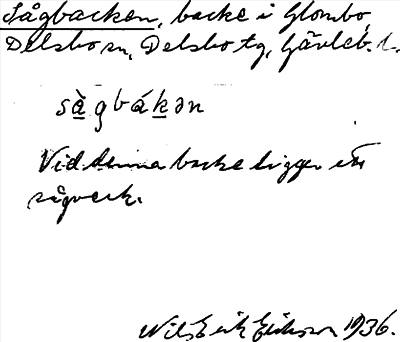 Sågbacken, backe i Glombo,
Delsbo sn, Delsbo tg, Gävleb. l.
sàgbákən
Vid denna backe ligger ett
sågverk.
Nils Erik Eriksson 1936.